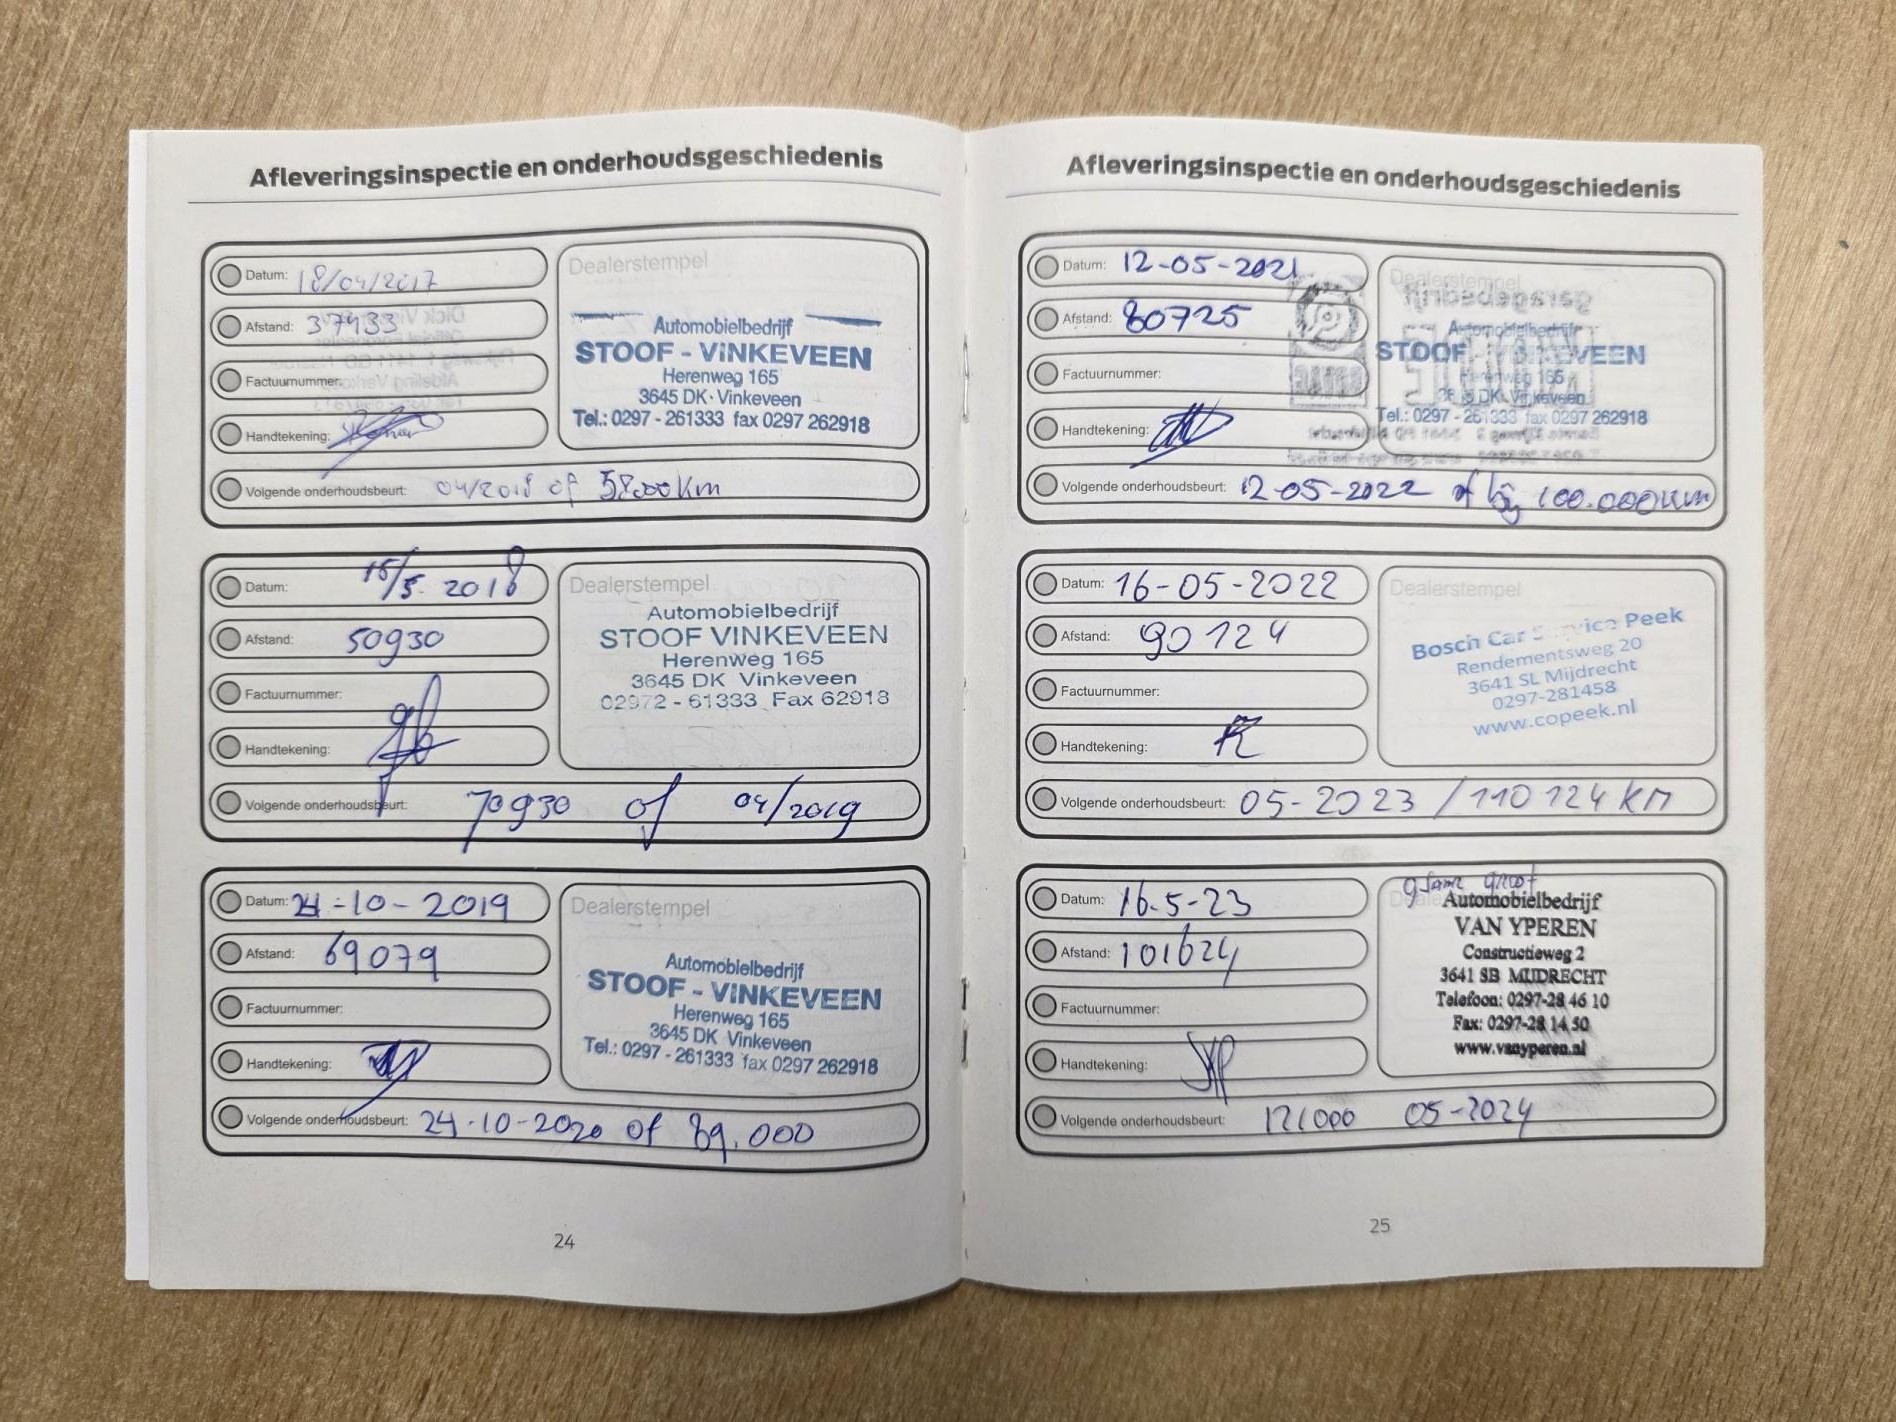 Afleveringsinspectie en onderhoudsgeschiedenis
Datum: 18/04/2017
Afstand: 37933
Factuurnummer:
Handtekening:
Volgende onderhoudsbeurt: 04/2018 of 58000 km
Dealerstempel
Automobielbedrijf
STOOF - ViNKEVEEN
Herenweg 165
3645 DK · Vinkeveen
Tel.: 0297 - 261333 fax 0297 262918
Datum: 15/5 2018
Afstand: 50930
Factuurnummer:
Handtekening:
Volgende onderhoudsbeurt: 70930 of 04/2019
Dealerstempel
Automobielbedrijf
STOOF VINKEVEEN
Herenweg 165
3645 DK Vinkeveen
02972 - 61333 Fax 62918
Datum: 24-10-2019
Afstand: 69079
Factuurnummer:
Handtekening:
Volgende onderhoudsbeurt: 24-10-2020 of 89.000
Dealerstempel
Automobielbedrijf
STOOF - VINKEVEEN
Herenweg 165
3645 DK Vinkeveen
Tel.: 0297 - 261333 fax 0297 262918
24
Afleveringsinspectie en onderhoudsgeschiedenis
Datum: 12-05-2021
Afstand: 80725
Factuurnummer:
Handtekening:
Volgende onderhoudsbeurt: 12-05-2022 of bij 100.000km
Dealerstempel
Automobielbedrijf
STOOF VINKEVEEN
Herenweg 165
DK Vinkeveen
Tel.: 0297 - 261333 fax 0297 262918
Datum: 16-05-2022
Afstand: 90124
Factuurnummer:
Handtekening:
Volgende onderhoudsbeurt: 05-2023 / 110124 KM
Dealerstempel
Bosch Car Service Peek
Rendementsweg 20
3641 SL Mijdrecht
0297-281458
www.copeek.nl
Datum: 16-5-23
Afstand: 101624
Factuurnummer:
Handtekening:
Volgende onderhoudsbeurt: 121000 05-2024
groot
Automobielbedrijf
VAN YPEREN
Constructieweg 2
3641 SB MIJDRECHT
Telefoon: 0297-28 46 10
Fax: 0297-28 14 50
www.vanyperen.nl
25